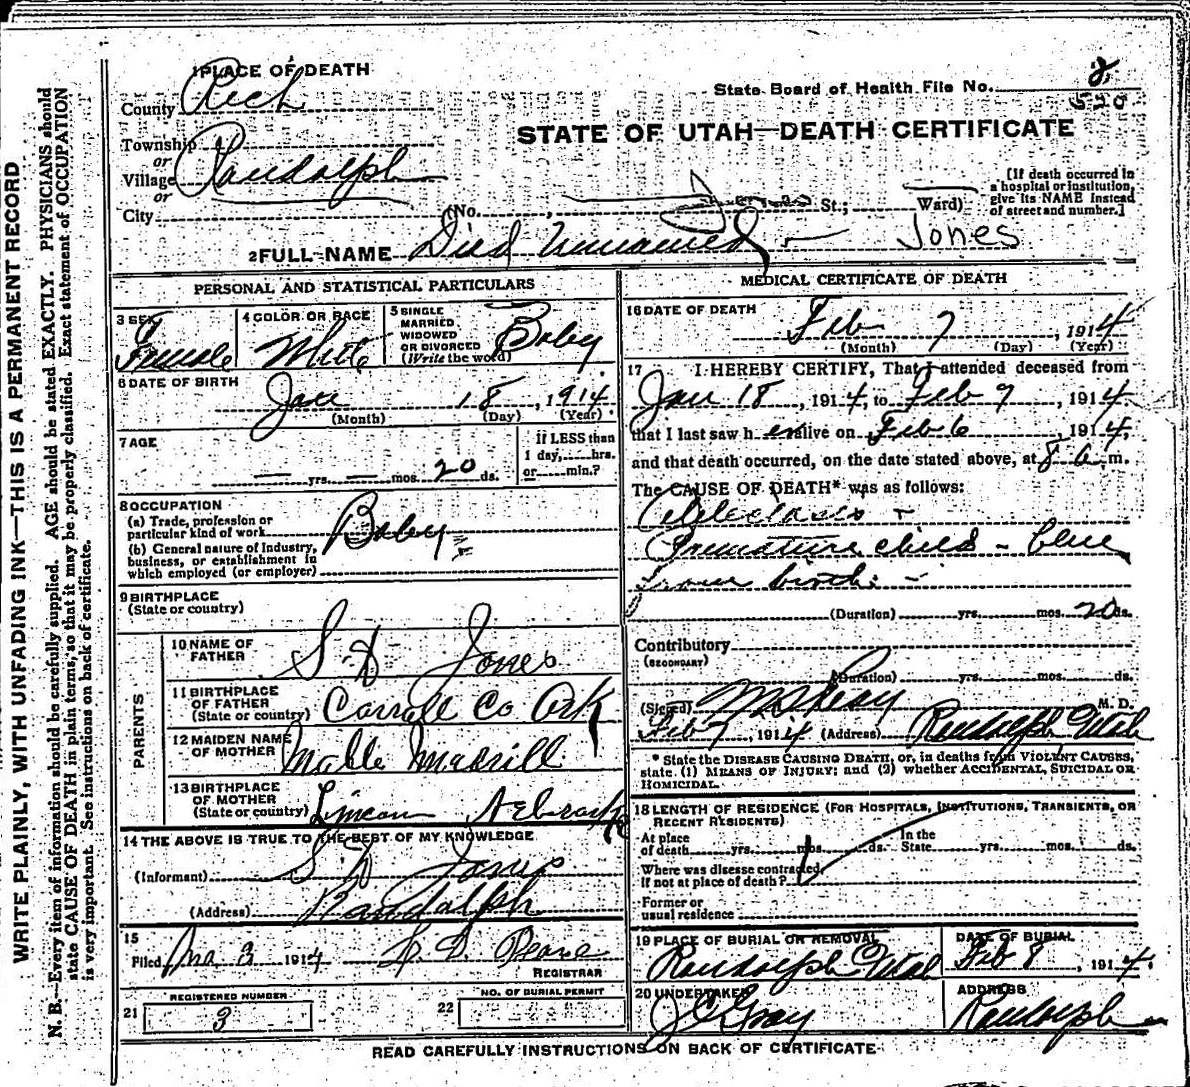 WRITE PLAINLY, WITH UNFADING INK—THIS IS A PERMANENT RECORD
N. B.—Every item of information should be carefully supplied. AGE should be stated EXACTLY. PHYSICIANS should
state CAUSE OF DEATH in plain terms, so that it may be properly classified. Exact statement of OCCUPATION
is very important. See instructions on back of certificate.
1 PLACE OF DEATH
County Rich
Township
or
Village Randolph
or
City
State Board of Health File No. 8
520
STATE OF UTAH—DEATH CERTIFICATE
(No. , St.; Ward)
[If death occurred in
a hospital or institution,
give its NAME instead
of street and number.]
2 FULL NAME Died Unnamed — Jones
PERSONAL AND STATISTICAL PARTICULARS
3 SEX
F
Female
4 COLOR OR RACE
White
5 SINGLE
MARRIED
WIDOWED
OR DIVORCED
(Write the word)
Baby
6 DATE OF BIRTH
Jan 18, 1914
(Month) (Day) (Year)
7 AGE
— yrs. — mos. 20 ds.
If LESS than
1 day, hrs.
or min.?
8 OCCUPATION
(a) Trade, profession or
particular kind of work Baby
(b) General nature of Industry,
business, or establishment in
which employed (or employer)
9 BIRTHPLACE
(State or country)
PARENTS
10 NAME OF
FATHER Jones
11 BIRTHPLACE
OF FATHER
(State or country) Carroll Co Ark
12 MAIDEN NAME
OF MOTHER
13 BIRTHPLACE
OF MOTHER
(State or country) Lincoln Nebraska
14 THE ABOVE IS TRUE TO THE BEST OF MY KNOWLEDGE
(Informant) Jones
(Address) Randolph
15
Filed Ma 3 1914 Pearse
REGISTRAR
REGISTERED NUMBER
21 3
NO. OF BURIAL PERMIT
22
MEDICAL CERTIFICATE OF DEATH
16 DATE OF DEATH
Feb 7, 1914
(Month) (Day) (Year)
17 I HEREBY CERTIFY, That I attended deceased from
Jan 18, 1914, to Feb 7, 1914
that I last saw h er alive on Feb 6, 1914,
and that death occurred, on the date stated above, at 8 a.m.
The CAUSE OF DEATH* was as follows:
Atelectasis
Premature child - blue
from birth
(Duration) yrs. mos. 20 ds.
Contributory
(SECONDARY)
(Duration) yrs. mos. ds.
(Signed) M. D.
Feb 7, 1914 (Address) Randolph Utah
* State the DISEASE CAUSING DEATH, or, in deaths from VIOLENT CAUSES,
state (1) MEANS OF INJURY; and (2) whether ACCIDENTAL, SUICIDAL OR
HOMICIDAL.
18 LENGTH OF RESIDENCE (FOR HOSPITALS, INSTITUTIONS, TRANSIENTS, OR
RECENT RESIDENTS)
At place
of death yrs. mos. ds.
In the
State yrs. mos. ds.
Where was disease contracted,
if not at place of death?
Former or
usual residence
19 PLACE OF BURIAL OR REMOVAL
Randolph Utah
DATE OF BURIAL
Feb 8, 1914.
20 UNDERTAKER
J C Gray
ADDRESS
Randolph
READ CAREFULLY INSTRUCTIONS ON BACK OF CERTIFICATE